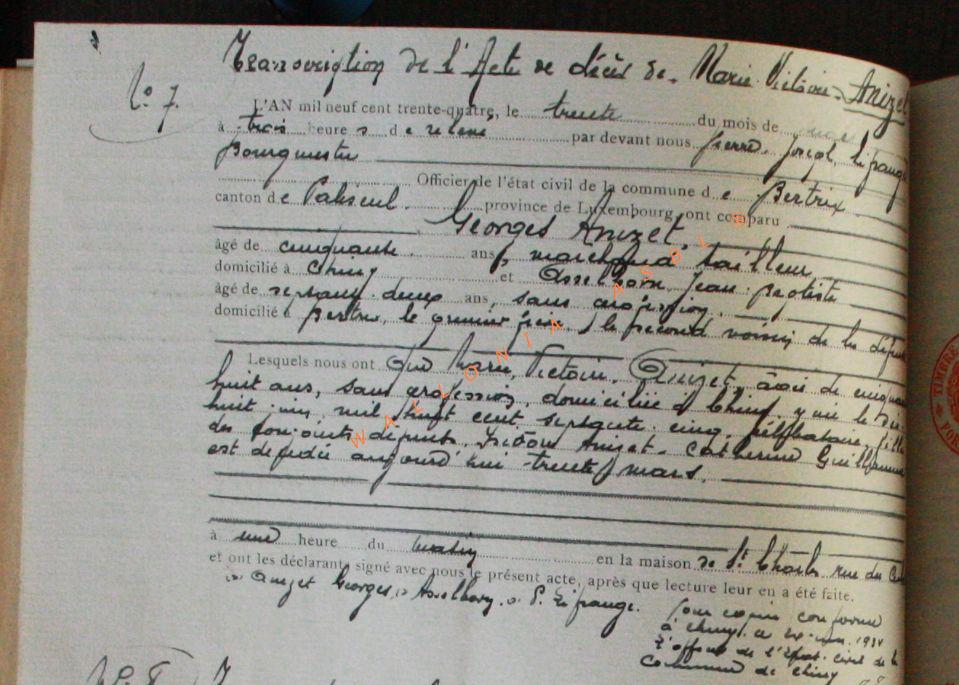 Transcription de l'Acte de décès de Marie Victoire Anizet
No 7.
L'AN mil neuf cent trente-quatre, le trente du mois de
à trois heures de relevé par devant nous Pierre Joseph, Lefrange
Bourgmestre
Officier de l'état civil de la commune de Bertrix
canton de Paliseul province de Luxembourg, ont comparu
Georges Anizet,
âgé de cinquante ans, marchand tailleur,
domicilié à Chiny et Asselborn, Jean-Baptiste
âgé de septante-deux ans, sans profession,
domicilié à Bertrix, le premier frère, le second voisin de la défunte
Lesquels nous ont que Marie, Victoire, Anizet, âgée de cinquante
huit ans, sans profession, domiciliée à Chiny, y née le dix
huit juin mil huit cent septante cinq célibataire, fille
des conjoints défunts Anizet - Catherine Guillaume
est décédée aujourd'hui trente mars.
à une heure du matin en la maison de St Charles rue du
et ont les déclarant signé avec nous le présent acte, après que lecture leur en a été faite.
Anizet Georges, Asselborn, P. Lefrange.
Pour copie conforme
à Chiny, ce 1934
L'officier de l'état civil de la
Commune de Chiny
WALLONIA ASBL ©
TIMBRE